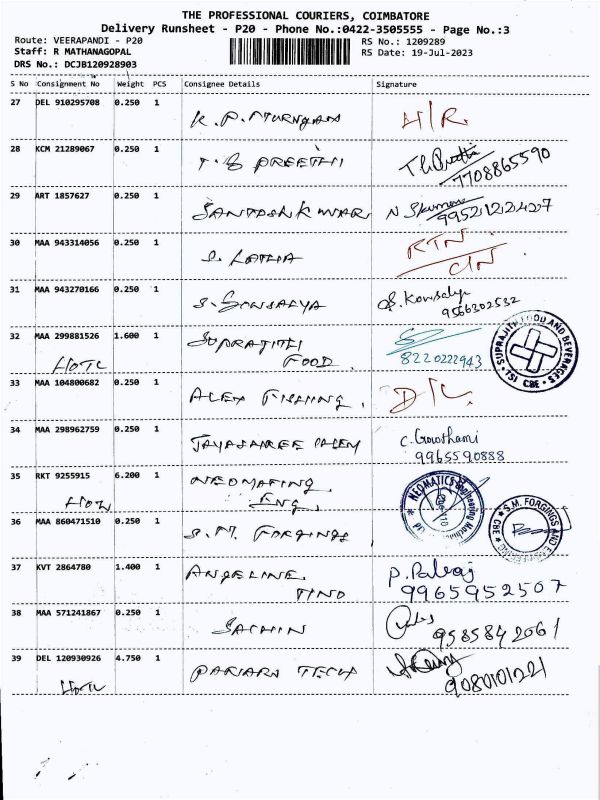 THE PROFESSIONAL COURIERS, COIMBATORE
Delivery Runsheet - P20 - Phone No.:0422-3505555 - Page No.:3
Route: VEERAPANDI - P20
Staff: R MATHANAGOPAL
DRS No.: DCJB120928903
RS No.: 1209289
RS Date: 19-Jul-2023
S No Consignment No Weight PCS Consignee Details Signature
27 DEL 910295708 0.250 1 K. P. MURUGAN
28 KCM 21289067 0.250 1 T. S PREETHI 7708865590
29 ART 1857627 0.250 1 SANTOSH KUMAR 9952122427
30 MAA 943314056 0.250 1 S. LATHA RTN
31 MAA 943270166 0.250 1 S. Kowsalya 9566302532
32 MAA 299881526 1.600 1 SUPRAJITH FOOD 8220222943
SUPRAJITH FOOD AND BEVERAGES TSI CBE
33 MAA 104800682 0.250 1 ALEX D/L
34 MAA 298962759 0.250 1 JAYASHREE C. Gowthami 9965590888
35 RKT 9255915 6.200 1 ENG
NEOMATICS Engineering
36 MAA 860471510 0.250 1 S. M. FORGINGS
S.M. FORGINGS AND CBE
37 KVT 2864780 1.400 1 ANGELINE P. Palraj 9965952507
38 MAA 571241867 0.250 1 SACHIN 9585842061
39 DEL 120930926 4.750 1 TECH 9080101221